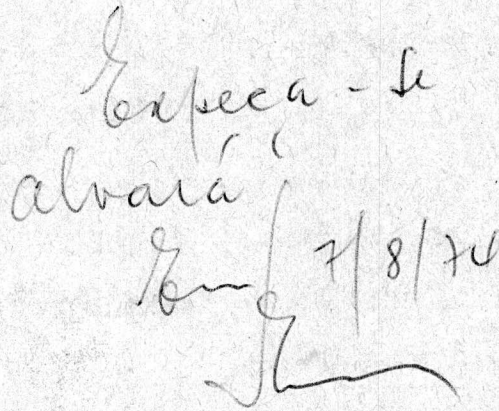 Expeça-se
alvará
Em 7/8/74